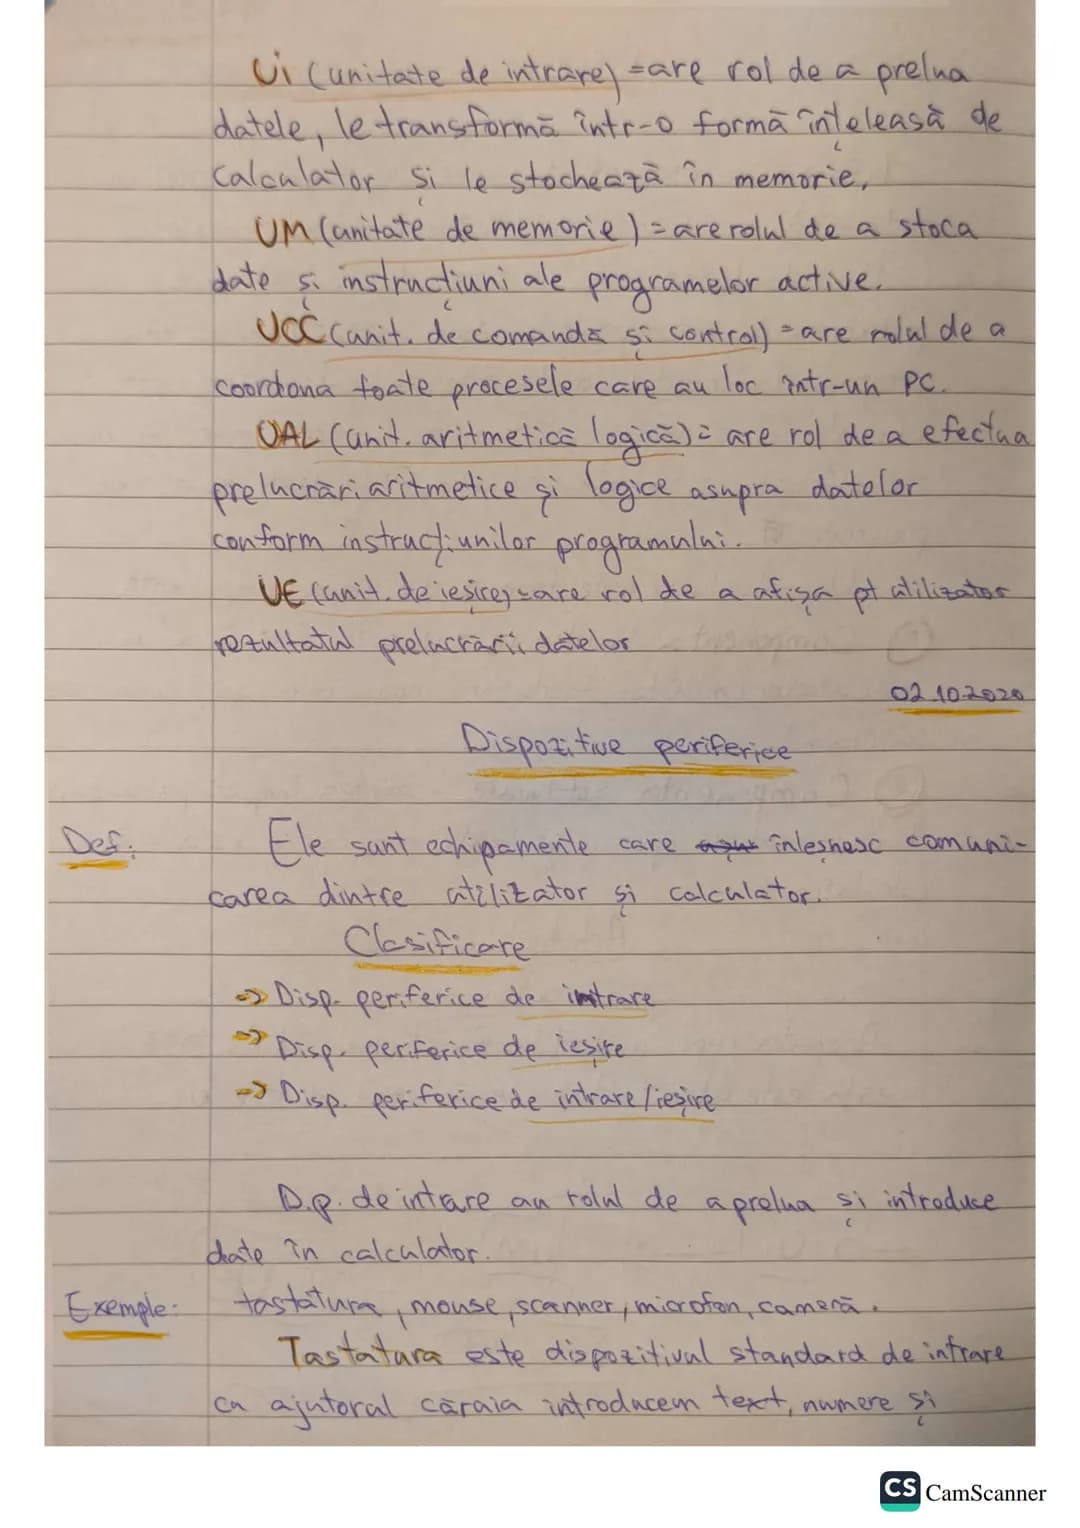 Ui (unitate de intrare) = are rol de a prelua
datele, le transformă într-o formă înțeleasă de
calculator și le stochează în memorie,
UM (unitate de memorie) = are rolul de a stoca
date și instrucțiuni ale programelor active.
UCC (unit. de comandă și control) = are rolul de a
coordona toate procesele care au loc într-un PC.
UAL (unit. aritmetică logică) = are rol de a efectua
prelucrări aritmetice și logice asupra datelor
conform instrucțiunilor programului.
UE (unit. de ieșire) = are rol de a afișa pt utilizator
rezultatul prelucrării datelor
02.10.2020
Dispozitive periferice
Def: Ele sunt echipamente care înlesnesc comuni-
carea dintre utilizator și calculator.
Clasificare
=> Disp. periferice de intrare
=> Disp. periferice de ieșire
=> Disp. periferice de intrare/ieșire
D.p. de intare au rolul de a prelua și introduce
date în calculator.
Exemple: tastatura, mouse, scanner, microfon, cameră.
Tastatura este dispozitivul standard de intrare
cu ajutorul căraia introducem text, numere și
CS CamScanner